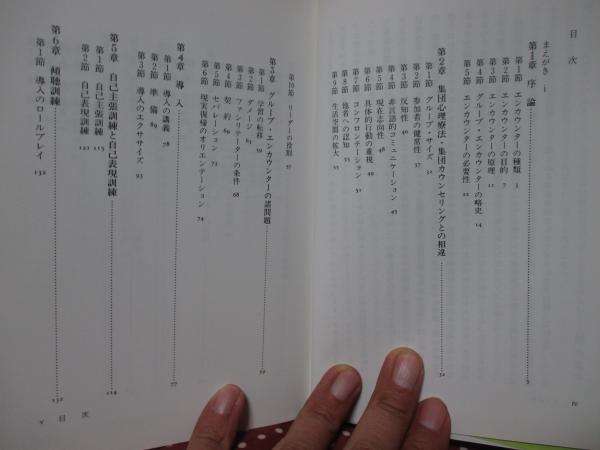 目次
まえがき i
第1章 序論 3
第1節 エンカウンターの種類 3
第2節 エンカウンターの目的 7
第3節 エンカウンターの原理 11
第4節 グループ・エンカウンターの略史 14
第5節 エンカウンターの必要性 22
第2章 集団心理療法・集団カウンセリングとの相違 32
第1節 グループ・サイズ 32
第2節 参加者の健常性
第3節 反知性
第4節 非言語的コミュニケーション
第5節 現在志向性 45
第6節 具体的行動の重視 49
第7節 コンフロンテーション 51
第8節 他者への認知 53
第9節 生活空間の拡大 55
iv
第10節 リーダーの役割 57
第3章 グループ・エンカウンターの諸問題 59
第1節 学習の転移 59
第2節 ダメージ 61
第3節 ファシリテーターの条件 68
第4節 契約 69
第5節 セパレーション 71
第6節 現実復帰のオリエンテーション 74
第4章 導入 77
第1節 導入の講義 78
第2節 準備 89
第3節 導入のエクササイズ 93
第5章 自己主張訓練と自己表現訓練 114
第1節 自己主張訓練 115
第2節 自己表現訓練 122
第6章 傾聴訓練 132
第1節 導入のロールプレイ 132
v 目次